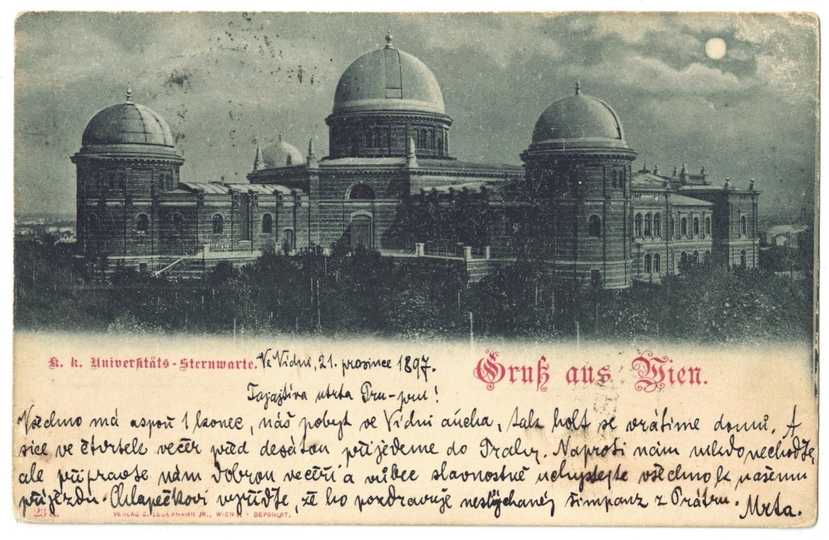 K. k. Universitäts-Sternwarte.
Ve Vídni, 21. prosince 1897.
Gruß aus Wien.
Všechno má aspoň 1 konec, náš pobyt ve Vídni, tak holt se vrátíme domů. A
sice ve čtvrtek večer před desátou přijedeme do Prahy. Naproti nám nikdo nechoďte,
ale připravte nám dobrou večeři a vůbec slavnostně uchystejte všechno k našemu
příjezdu. Chlapečkovi vyřiďte, že ho pozdravuje neslýchaný šimpanz z Prátru. Mrta.
23a.
VERLAG S. LEDERMANN JR., WIEN I. - DEPONIRT.